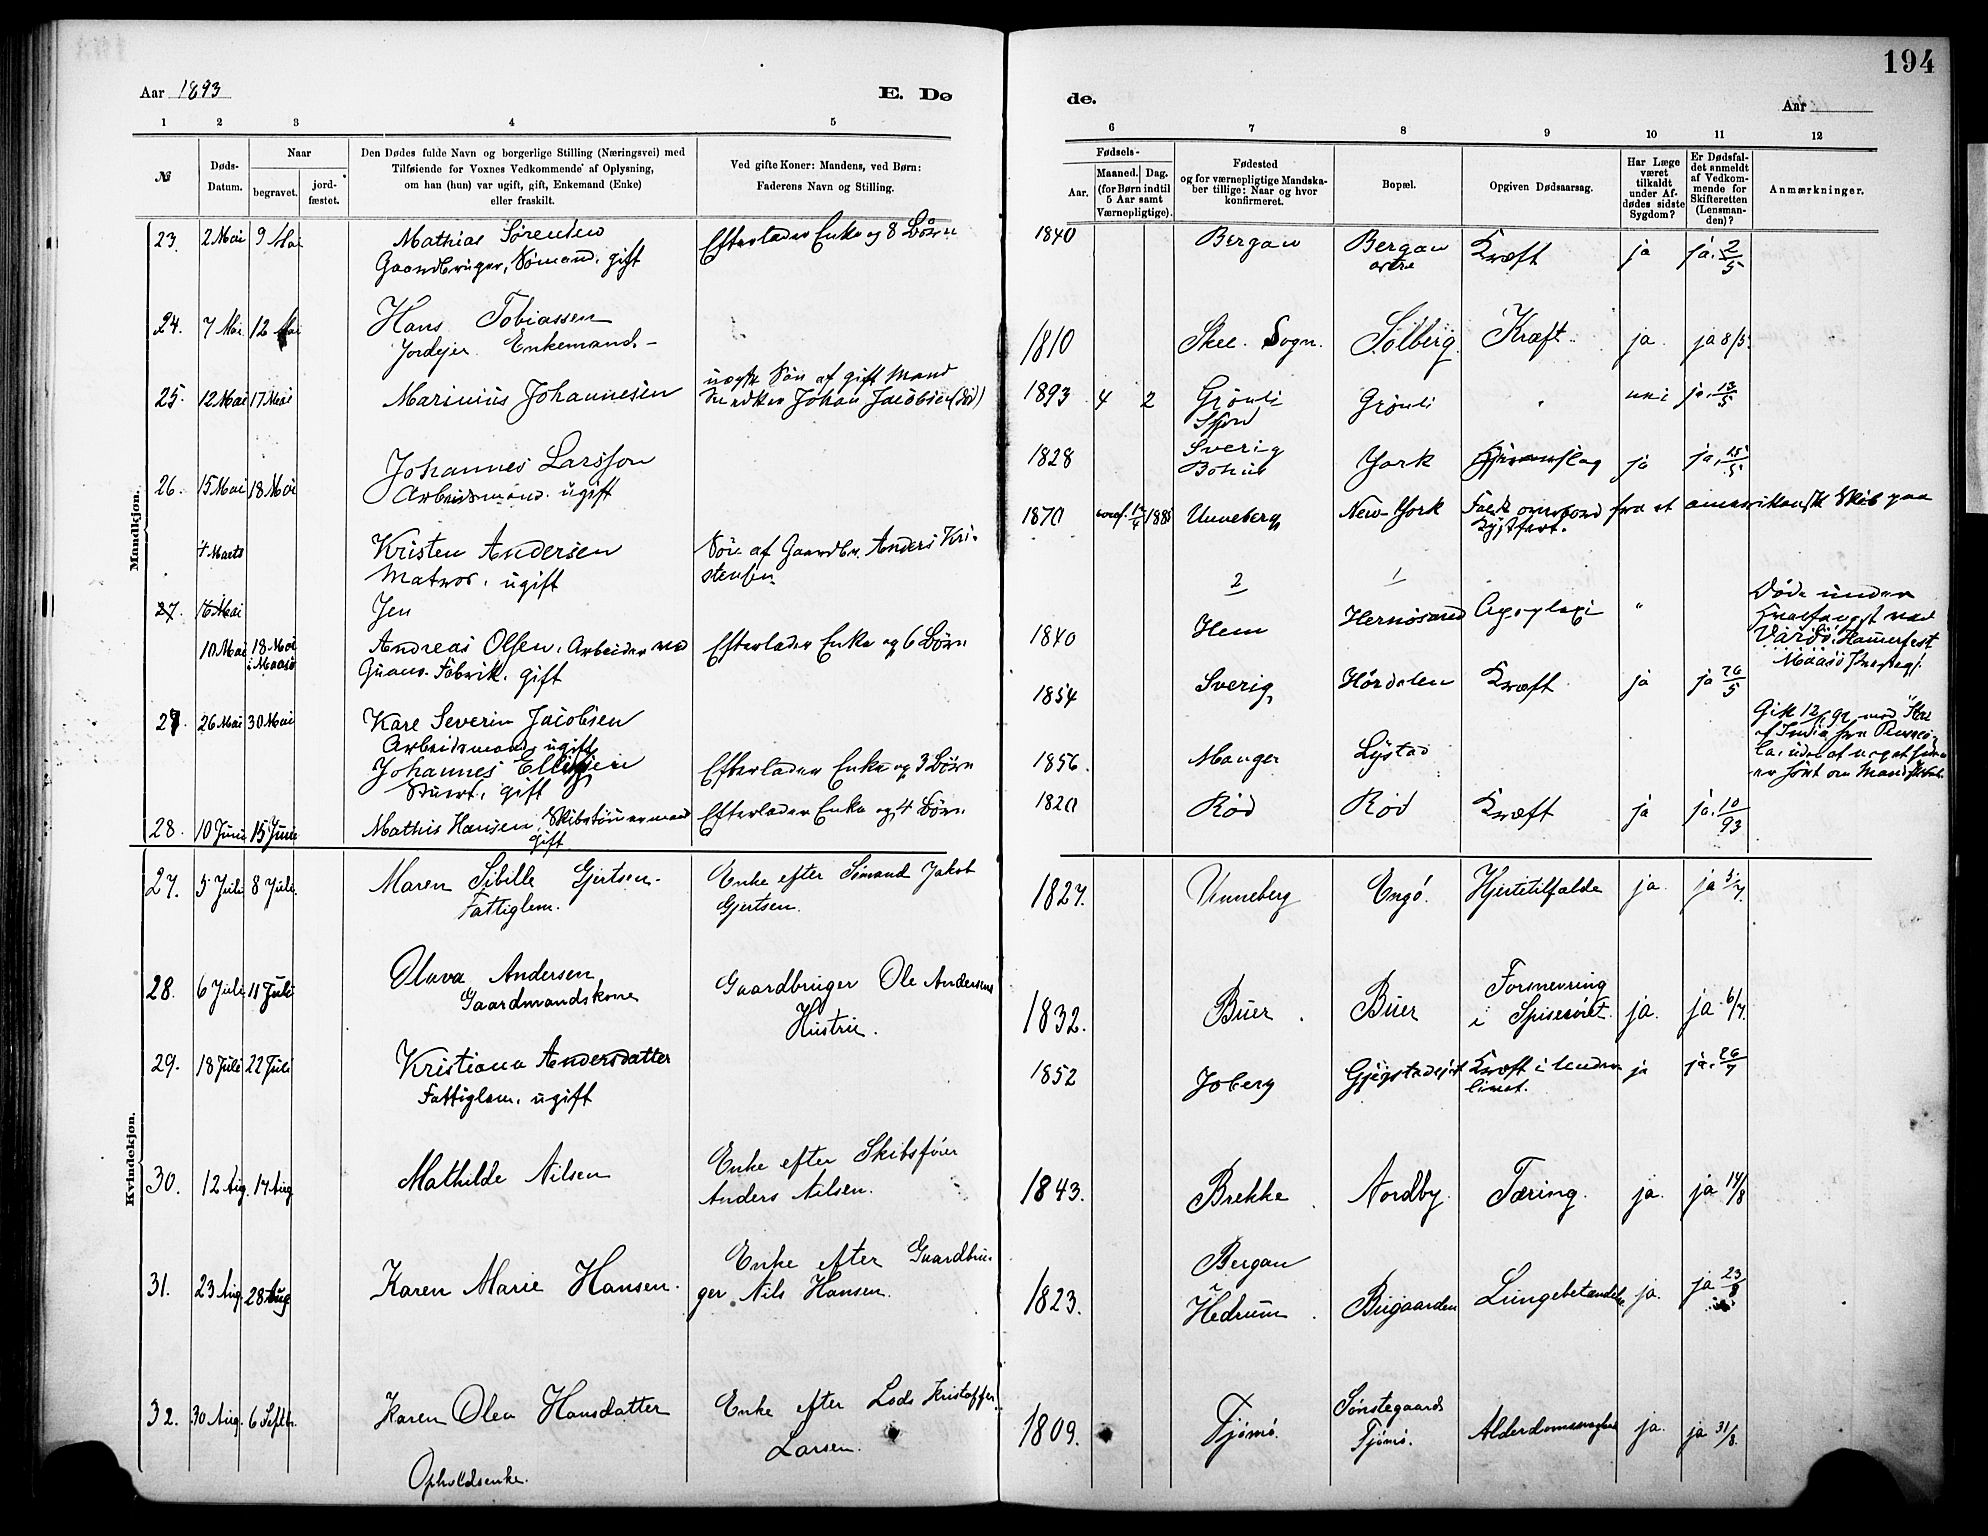 194
Aar 1893
E. Dø
de.
Aar
1 2 3 4 5 6 7 8 9 10 11 12
№
Døds-
Datum.
Naar
begravet.
jord-
fæstet.
Den Dødes fulde Navn og borgerlige Stilling (Næringsvei) med
Tilføiende for Voxnes Vedkommende af Oplysning,
om han (hun) var ugift, gift, Enkemand (Enke)
eller fraskilt.
Ved gifte Koner: Mandens, ved Børn:
Faderens Navn og Stilling.
Fødsels-
Aar.
Maaned. Dag.
(for Børn indtil
5 Aar samt
Værnepligtige).
Fødested
og for værnepligtige Mandska-
ber tillige: Naar og hvor
konfirmeret.
Bopæl.
Opgiven Dødsaarsag.
Har Læge
været
tilkaldt
under Af-
dødes sidste
Sygdom?
Er Dødsfal-
det anmeldt
af Vedkom-
mende for
Skifteretten
(Lensman-
den)?
Anmærkninger.
Mandkjøn.
23. 2 Mai 9 Mai Mathias Sørensen Efterlader Enke og 8 Børn 1840 Bergan Bergan Kræft ja ja. 2/5
Gaardbruger, Sømand, gift
24. 7 Mai 12 Mai Hans Tobiassen 1810 Skee Sogn. Solberg. Kræft ja ja 8/5
Jordejer Enkemand.
25. 12 Mai 17 Mai Marinius Johannesen uægte Søn af gift Mand 1893 4 2 Grönli Grönli " nei ja. 13/5
Johan Jacobsen (död)
26. 15 Mai 18 Mai Johannes Larsson 1828 Sverig York ja ja, 15/5
Arbeidsmand. ugift
4 Marts Kristen Andersen Søn af Gaardbr. Anders Kri- 1870 Unneberg New-York Faldt overbord fra et amerikansk Skib paa
Matros, ugift stensen Kystfart.
27. 16 Mai Jen
10 Mai 18 Mai Andreas Olsen, Arbeider ved Efterlader Enke og 6 Børn 1840 Hem Hernösand Apoplexi "
i Maasö Guano-Fabrik, gift
2 1
Döde under
Hvalfangst ved
Vardö, Hamerfest
Maasö
27 26 Mai 30 Mai Kare Severin Jacobsen 1854 Sverig Hördalen Kræft ja ja 26/5
Arbeidsmand, ugift
Johannes Efterlader Enke og 3 Børn 1856 Manger Lystad
gift
28. 10 Juni 15 Juni Mathis Hansen, Skibstömmermand Efterlader Enke og 4 Börn 1820 Röd Röd Kræft ja ja. 10/93
gift
Kvindekjøn.
27. 5 Juli 8 Juli. Maren Sibille Gjertsen. Enke efter Sömand Jakob 1827. Unneberg Engö. Hjertetilfælde ja. ja 5/7.
Fattiglem. Gjertsen.
28. 6 Juli 11 Juli Olava Andersen Gaardbruger Ole Andersens 1832. Buer Buer Forsnevring ja. ja 6/7.
Gaardmandskone Hustru. i Spiseröret.
29. 18 Juli 22 Juli Kristiana Andersdatter 1852 Joberg Kræft i Under ja ja. 20/7
Fattiglem, ugift livet.
30. 12 Aug. 17 Aug Mathilde Nilsen Enke efter Skibsförer 1843. Brekke Nordby. Tæring. ja. ja 14/8
Anders Nilsen.
31. 23 Aug. 28 Aug Karen Marie Hansen. Enke efter Gaardbru- 1823. Bergan Bugaarden Lungebetændelse ja. ja 23/8
ger Nils Hansen. i Hedrum
32. 30 Aug. 6 Septbr. Karen Olea Hansdatter Enke efter Lods Kristoffer 1809. Tjömö. Sönstegaard Alderdomssvaghed ja. ja 31/8.
Larsen. Tjömö.
Opholdsenke.